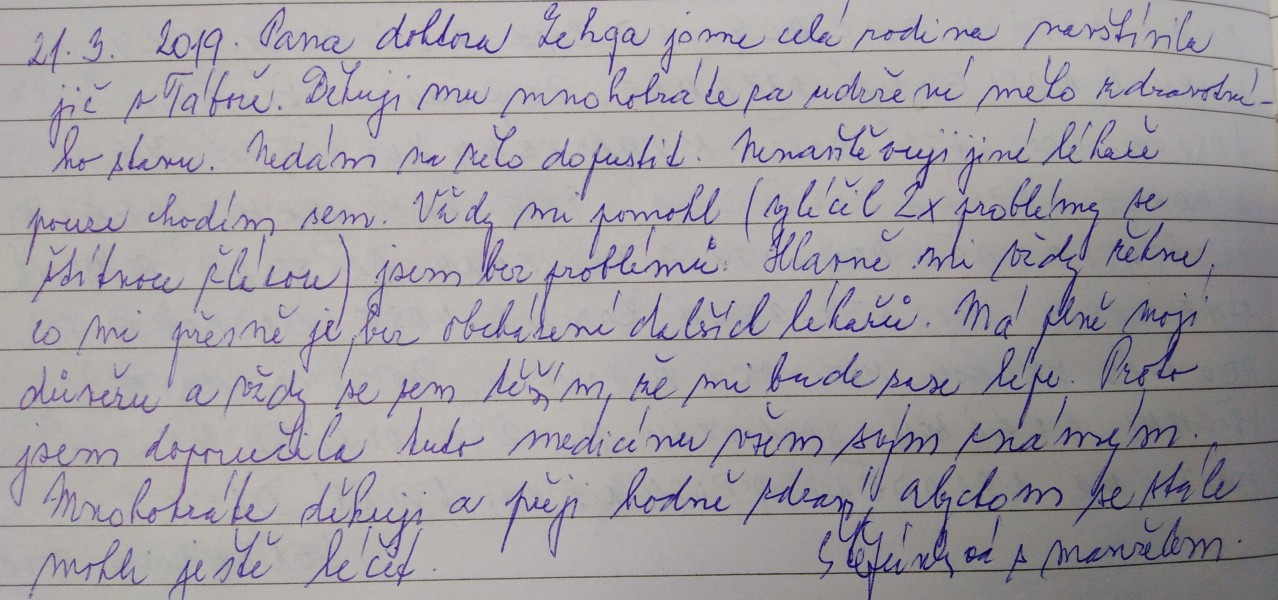 21. 3. 2019. Pana doktora jsme celá rodina navštívila
již v Táboře. Děkuji mu mnohokráte za udržení mého zdravotní-
ho stavu. Nedám na něho dopustit. Nenavštěvuji jiné lékaře
pouze chodím sem. Vždy mi pomohl (vyléčil 2x problémy se
štítnou žlázou) jsem bez problémů. Hlavně mi vždy řekne,
co mi přesně je, bez obcházení dalších lékařů. Má plně moji
důvěru a vždy se sem těším, že mi bude zase lépe. Proto
jsem doporučila tuto medicínu všem svým známým.
Mnohokráte děkuji a přeji hodně zdraví, abychom se stále
mohli ještě léčit. s manželem.